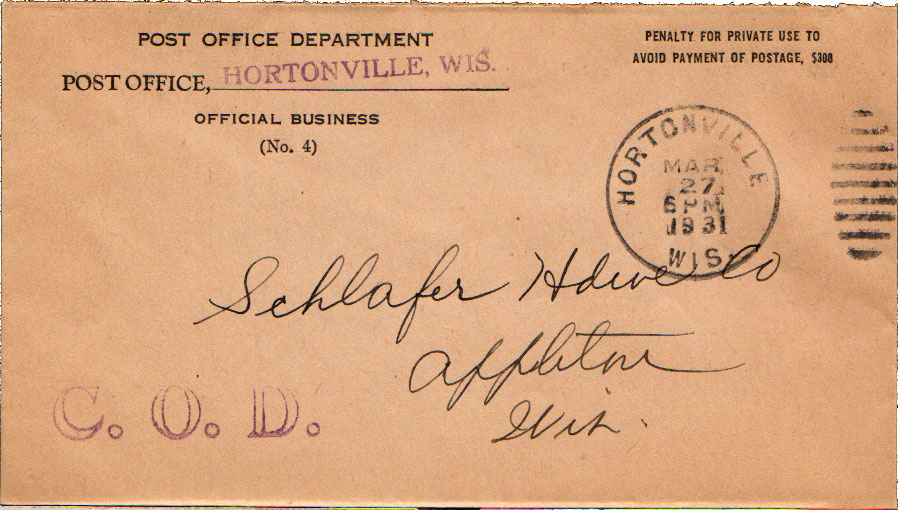 POST OFFICE DEPARTMENT
POST OFFICE, HORTONVILLE, WIS.
OFFICIAL BUSINESS
(No. 4)
PENALTY FOR PRIVATE USE TO
AVOID PAYMENT OF POSTAGE, $300
HORTONVILLE
MAR
27
6 PM
1931
WIS.
Schlafer Hdwe Co
Appleton
Wis.
C. O. D.